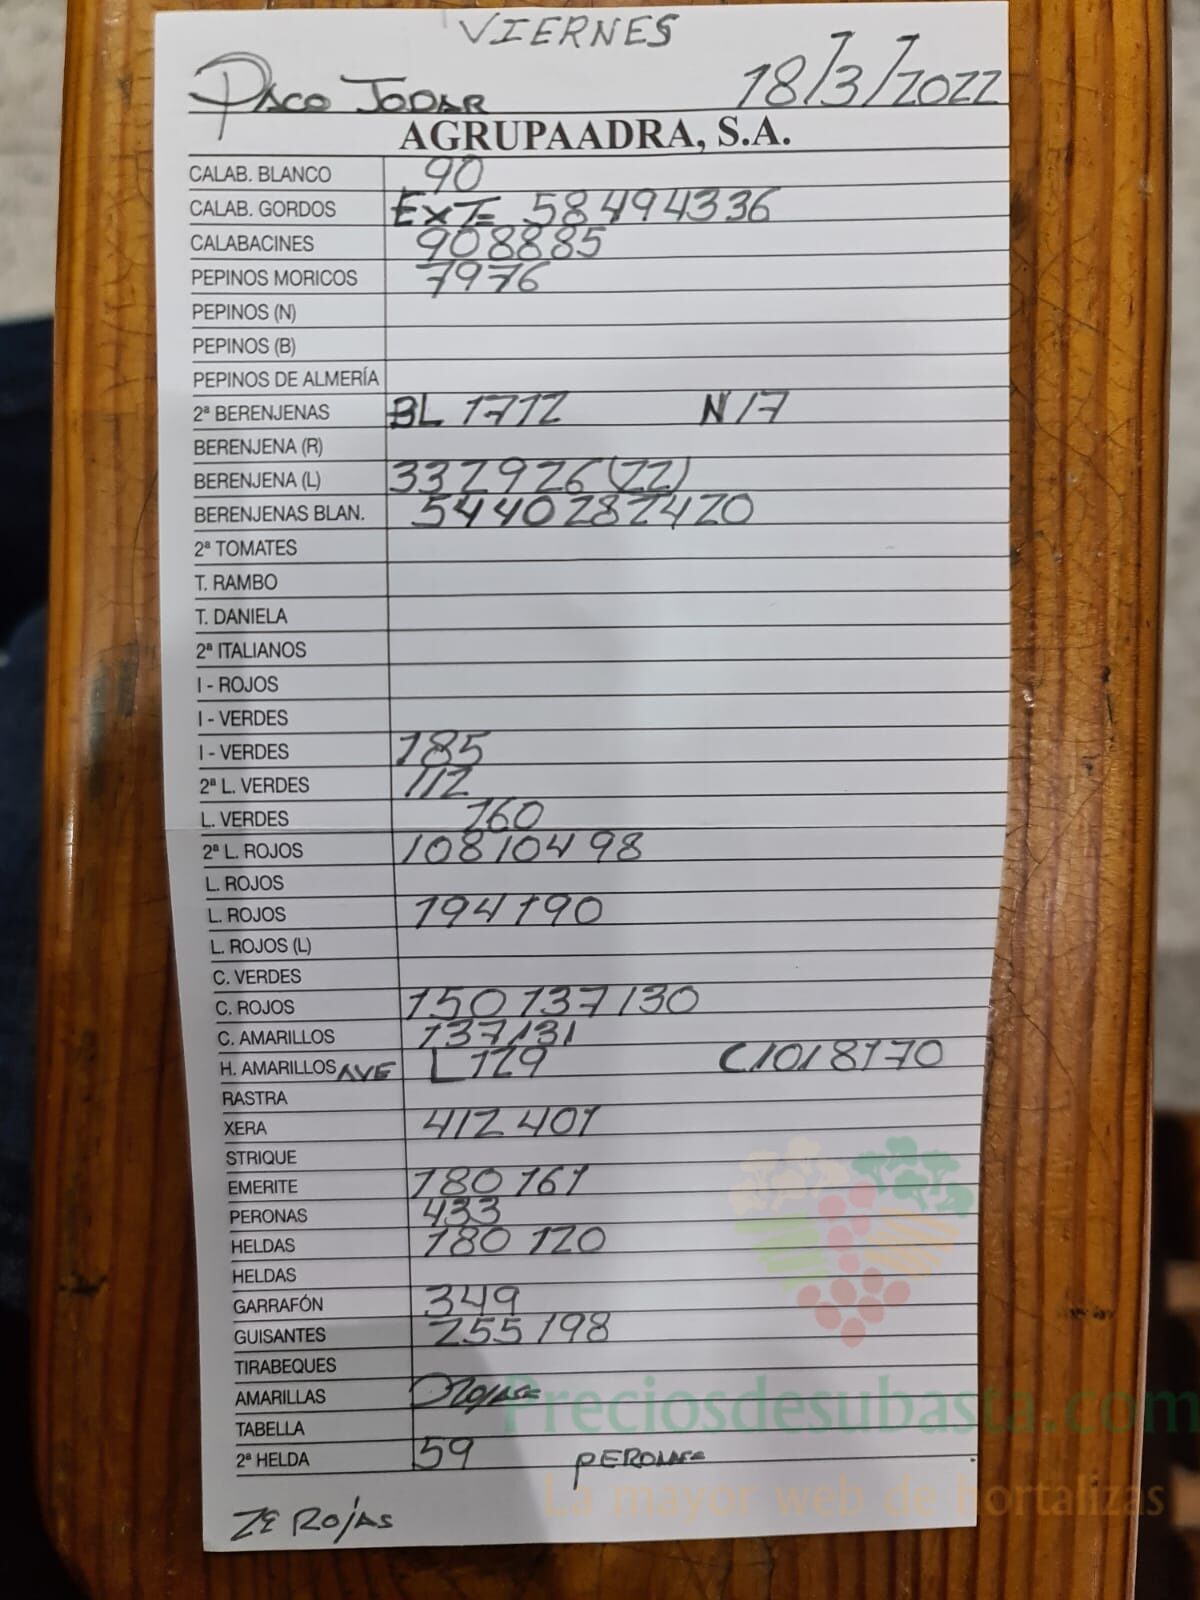 VIERNES
PACO JODAR 18/3/2022
AGRUPAADRA, S.A.
CALAB. BLANCO 90
CALAB. GORDOS EXT= 58494336
CALABACINES 908885
PEPINOS MORICOS 7976
PEPINOS (N)
PEPINOS (B)
PEPINOS DE ALMERÍA
2ª BERENJENAS BL 1712 N17
BERENJENA (R)
BERENJENA (L) 332926(22)
BERENJENAS BLAN. 5440282420
2ª TOMATES
T. RAMBO
T. DANIELA
2ª ITALIANOS
I - ROJOS
I - VERDES
I - VERDES 185
2ª L. VERDES 112
L. VERDES 160
2ª L. ROJOS 10810498
L. ROJOS
L. ROJOS 194190
L. ROJOS (L)
C. VERDES
C. ROJOS 150 137 130
C. AMARILLOS 137131
H. AMARILLOS AVE L 129 C1018170
RASTRA
XERA 412 401
STRIQUE
EMERITE 180 161
PERONAS 433
HELDAS 180 120
HELDAS
GARRAFÓN 349
GUISANTES 255 198
TIRABEQUES
AMARILLAS
TABELLA
2ª HELDA 59 PERONAS
2ª ROJAS
Preciosdesubasta.com
La mayor web de hortalizas